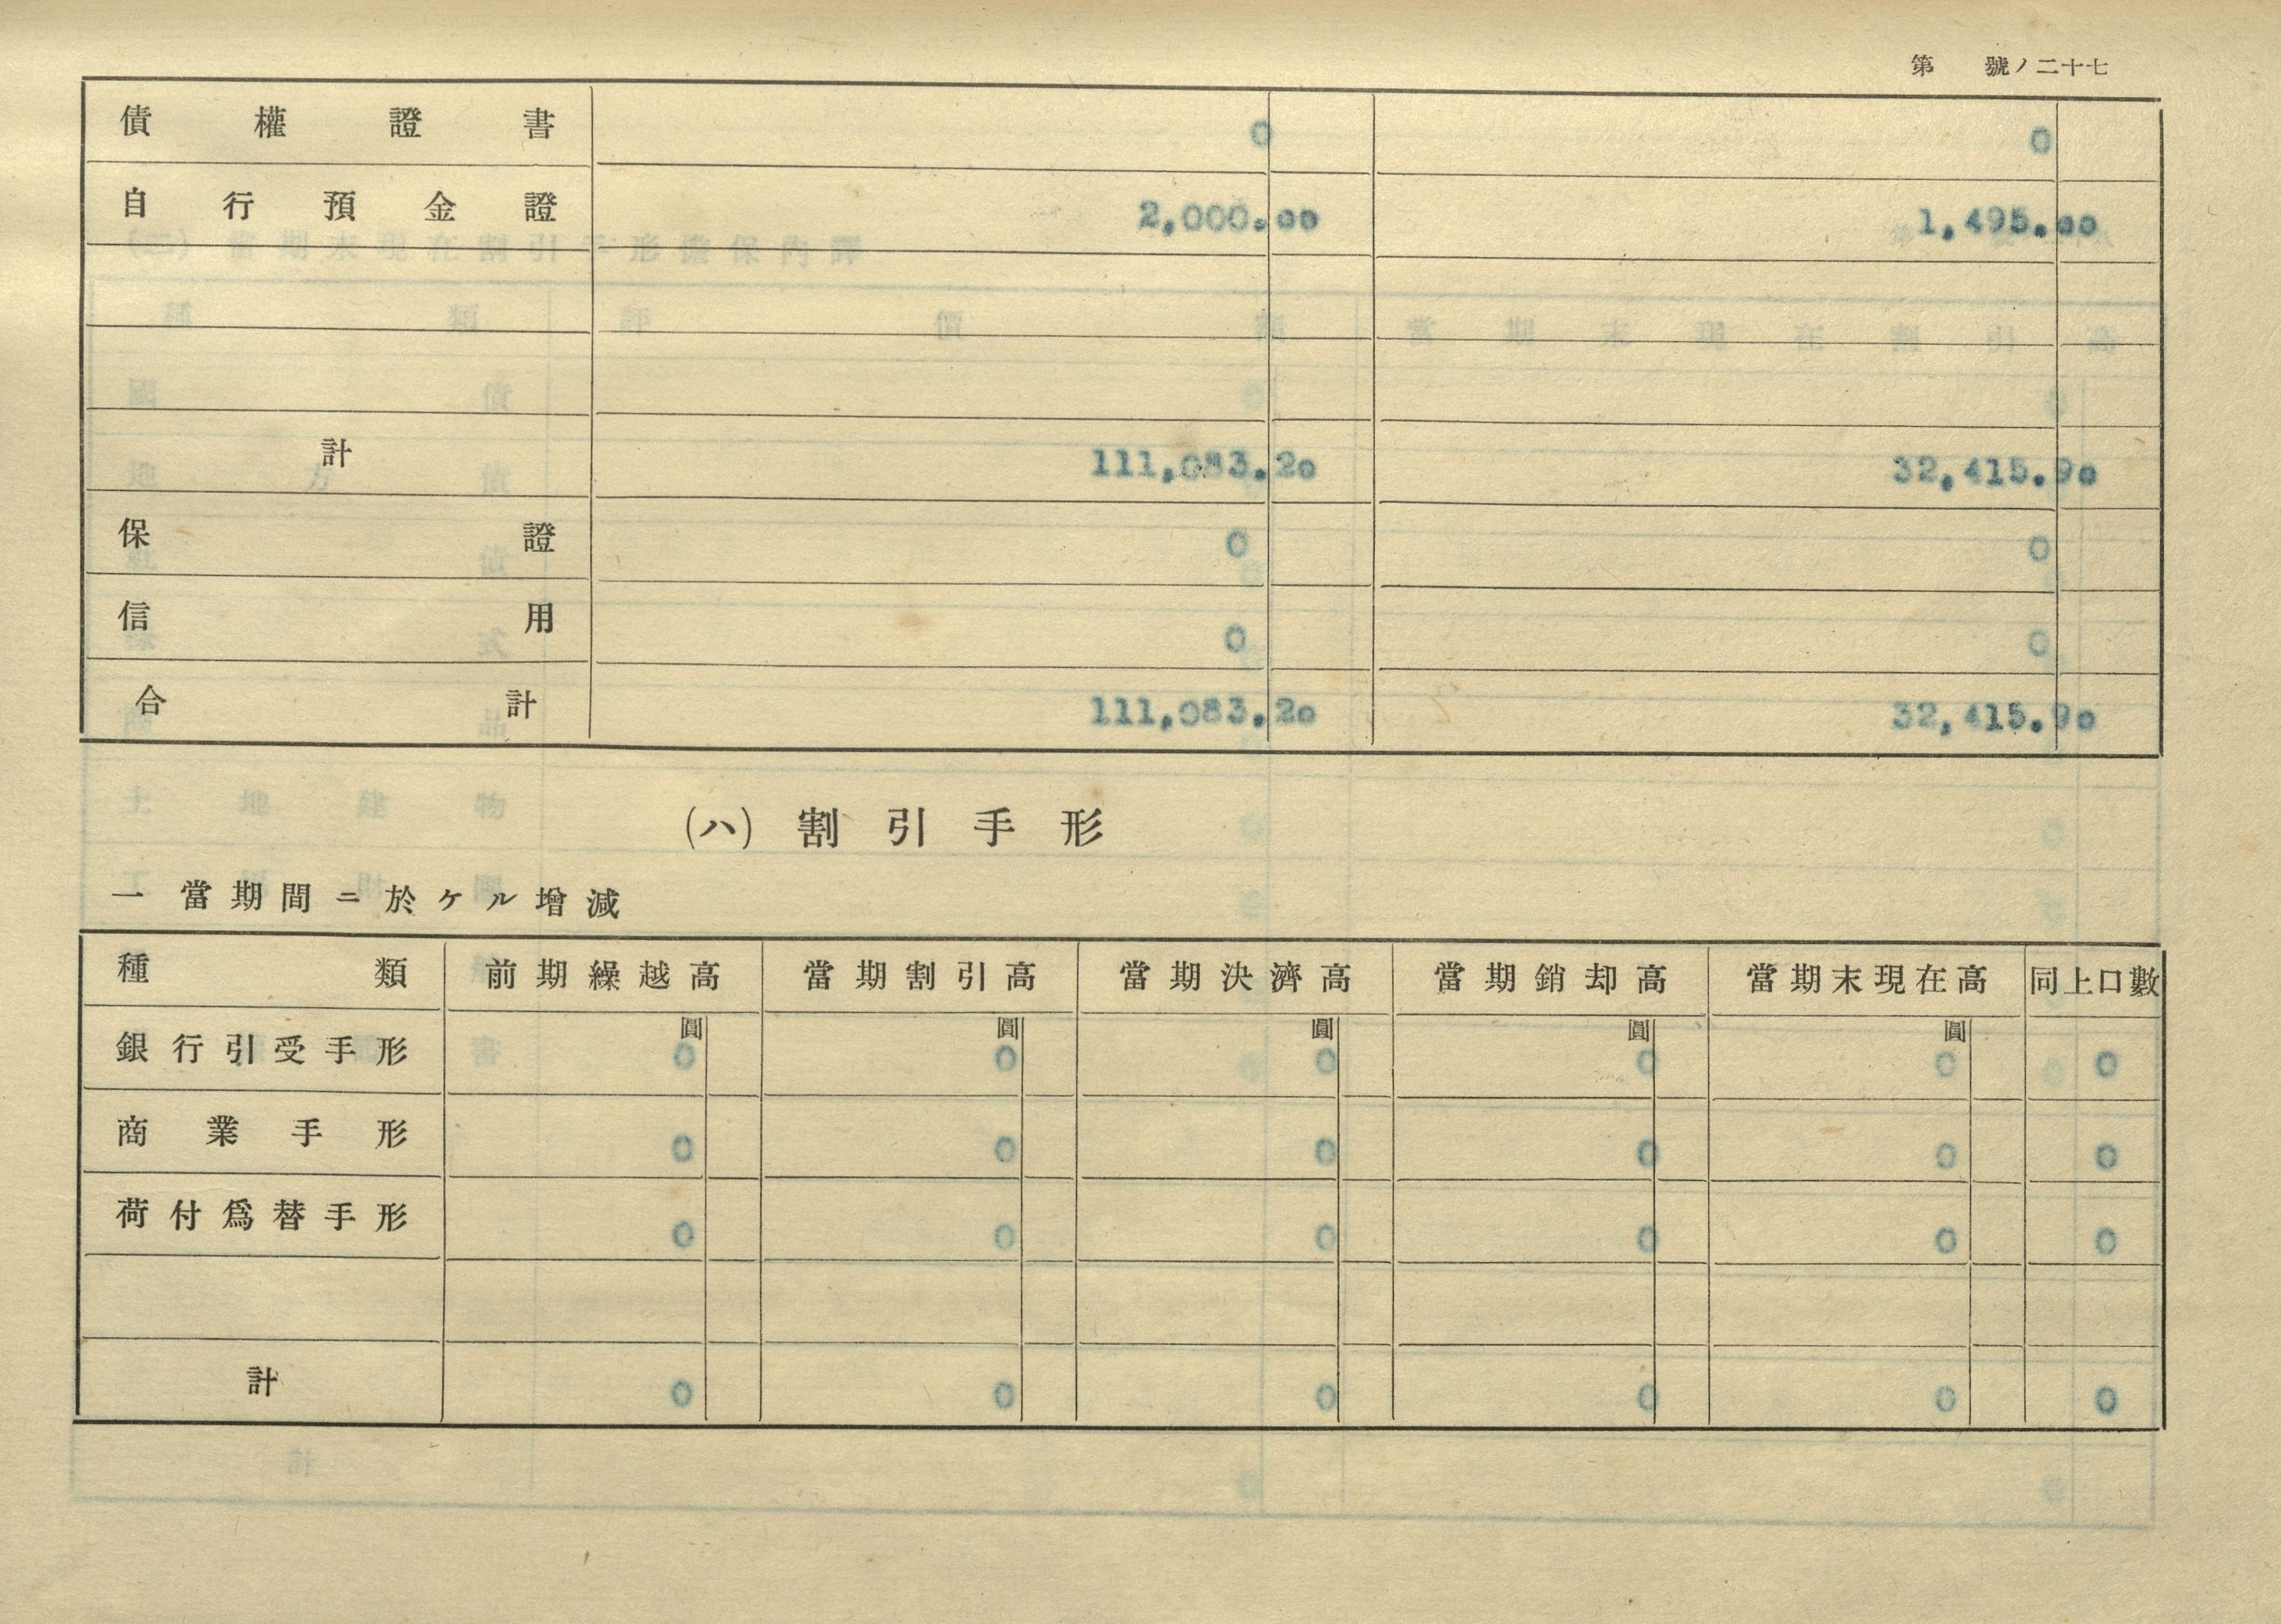 第 號ノ二十七
債權證書 0 0
自行預金證 2,000.00 1,495.00
計 111,083.20 32,415.90
保證 0 0
信用 0 0
合計 111,083.20 32,415.90
(ハ) 割引手形
一 當期間ニ於ケル增減
種類 前期繰越高 當期割引高 當期決濟高 當期銷却高 當期末現在高 同上口數
圓 圓 圓 圓 圓
銀行引受手形 0 0 0 0 0 0
商業手形 0 0 0 0 0 0
荷付爲替手形 0 0 0 0 0 0
計 0 0 0 0 0 0